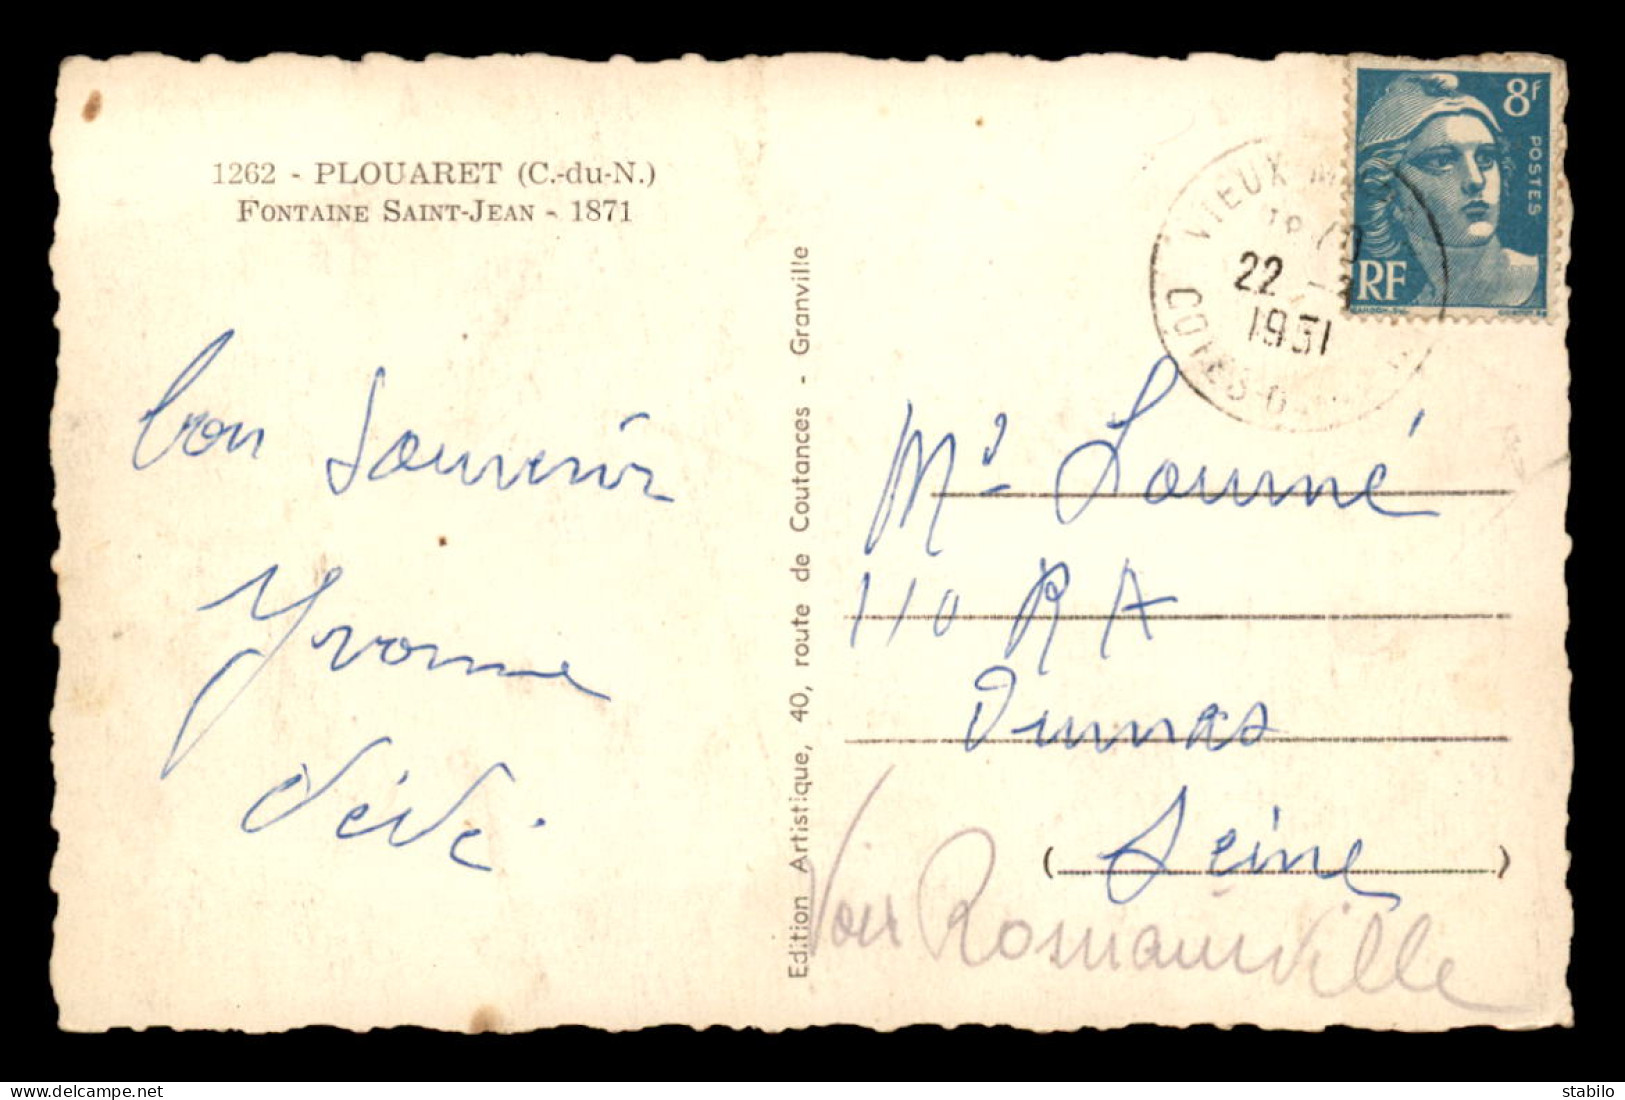 1262 - PLOUARET (C.-du-N.)
FONTAINE SAINT-JEAN - 1871
bon souvenir
Yvonne
Dédé
Edition Artistique, 40, route de Coutances - Granville
8F
POSTES
RF
VIEUX-M
22
1951
COTES-D
Md
110 R A
Seine
( )
Voir Romainville
delcampe.net
stabilo